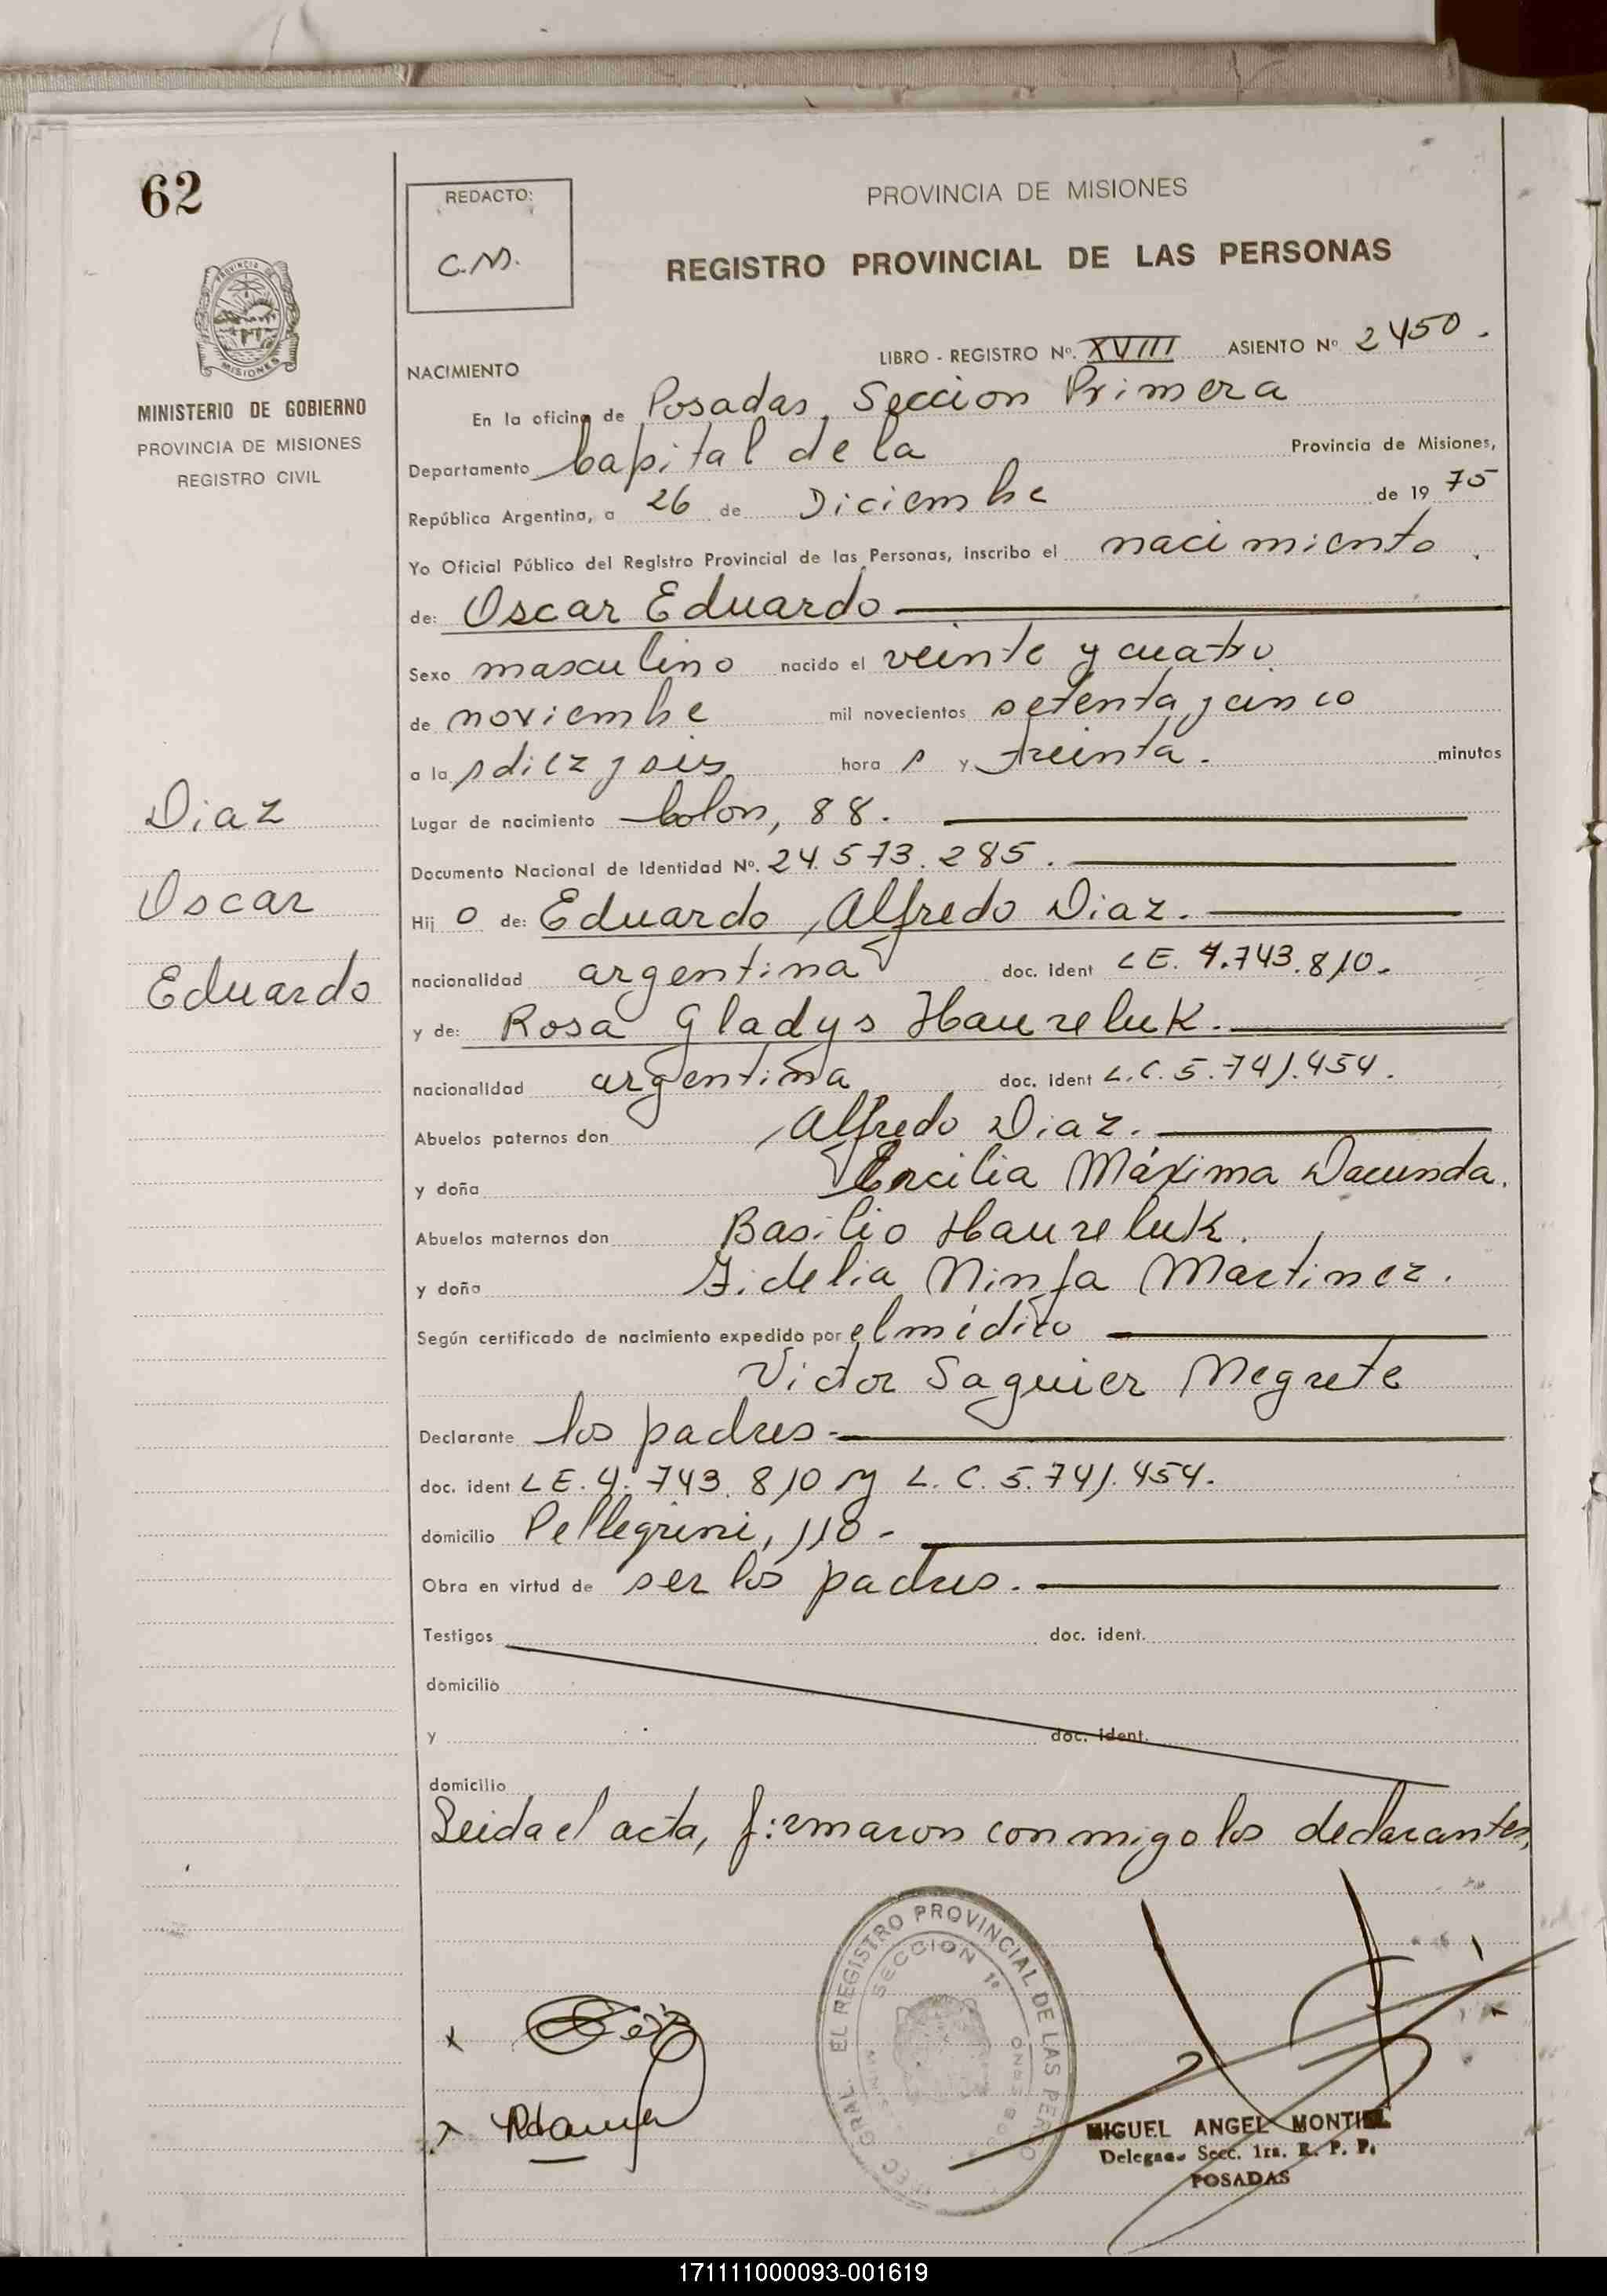 62
REDACTO:
C.M.
PROVINCIA DE MISIONES
REGISTRO PROVINCIAL DE LAS PERSONAS
PROVINCIA DE
MISIONES
MINISTERIO DE GOBIERNO
PROVINCIA DE MISIONES
REGISTRO CIVIL
LIBRO - REGISTRO Nº. XVIII ASIENTO Nº 2450.
NACIMIENTO
En la oficina de Posadas, Seccion Primera
Departamento Capital de la Provincia de Misiones,
República Argentina, a 26 de Diciembre de 1975
Yo Oficial Público del Registro Provincial de las Personas, inscribo el nacimiento.
de: Oscar Eduardo
Sexo masculino nacido el veinte y cuatro
de noviembre mil novecientos setenta y cinco
a la s diez y seis hora s y treinta. minutos
Lugar de nacimiento Colon, 88.
Documento Nacional de Identidad Nº. 24.573.285.
Hij o de: Eduardo Alfredo Diaz.
nacionalidad argentina doc. ident LE. 4.743.810.
y de: Rosa Gladys Haureluk.
nacionalidad argentina doc. ident L.C. 5.741.454.
Abuelos paternos don Alfredo Diaz.
y doña Ercilia Máxima Dacunda.
Abuelos maternos don Basilio Haureluk.
y doña Fidelia Ninfa Martinez.
Según certificado de nacimiento expedido por el médico
Victor Saguier Negrete
Declarante los padres.
doc. ident LE. 4.743.810 y L.C. 5.741.454.
domicilio Pellegrini, 110-
Obra en virtud de ser los padres.
Testigos doc. ident.
domicilio
y doc. ident.
domicilio
Leida el acta, firmaron conmigo los declarantes,
Diaz
Oscar
Eduardo
EL REGISTRO PROVINCIAL DE LAS PERSO
SECCION 1º
GRAL.
MIGUEL ANGEL MONTIEL
Delegado Secc. 1ra. R. P. P.
POSADAS
171111000093-001619